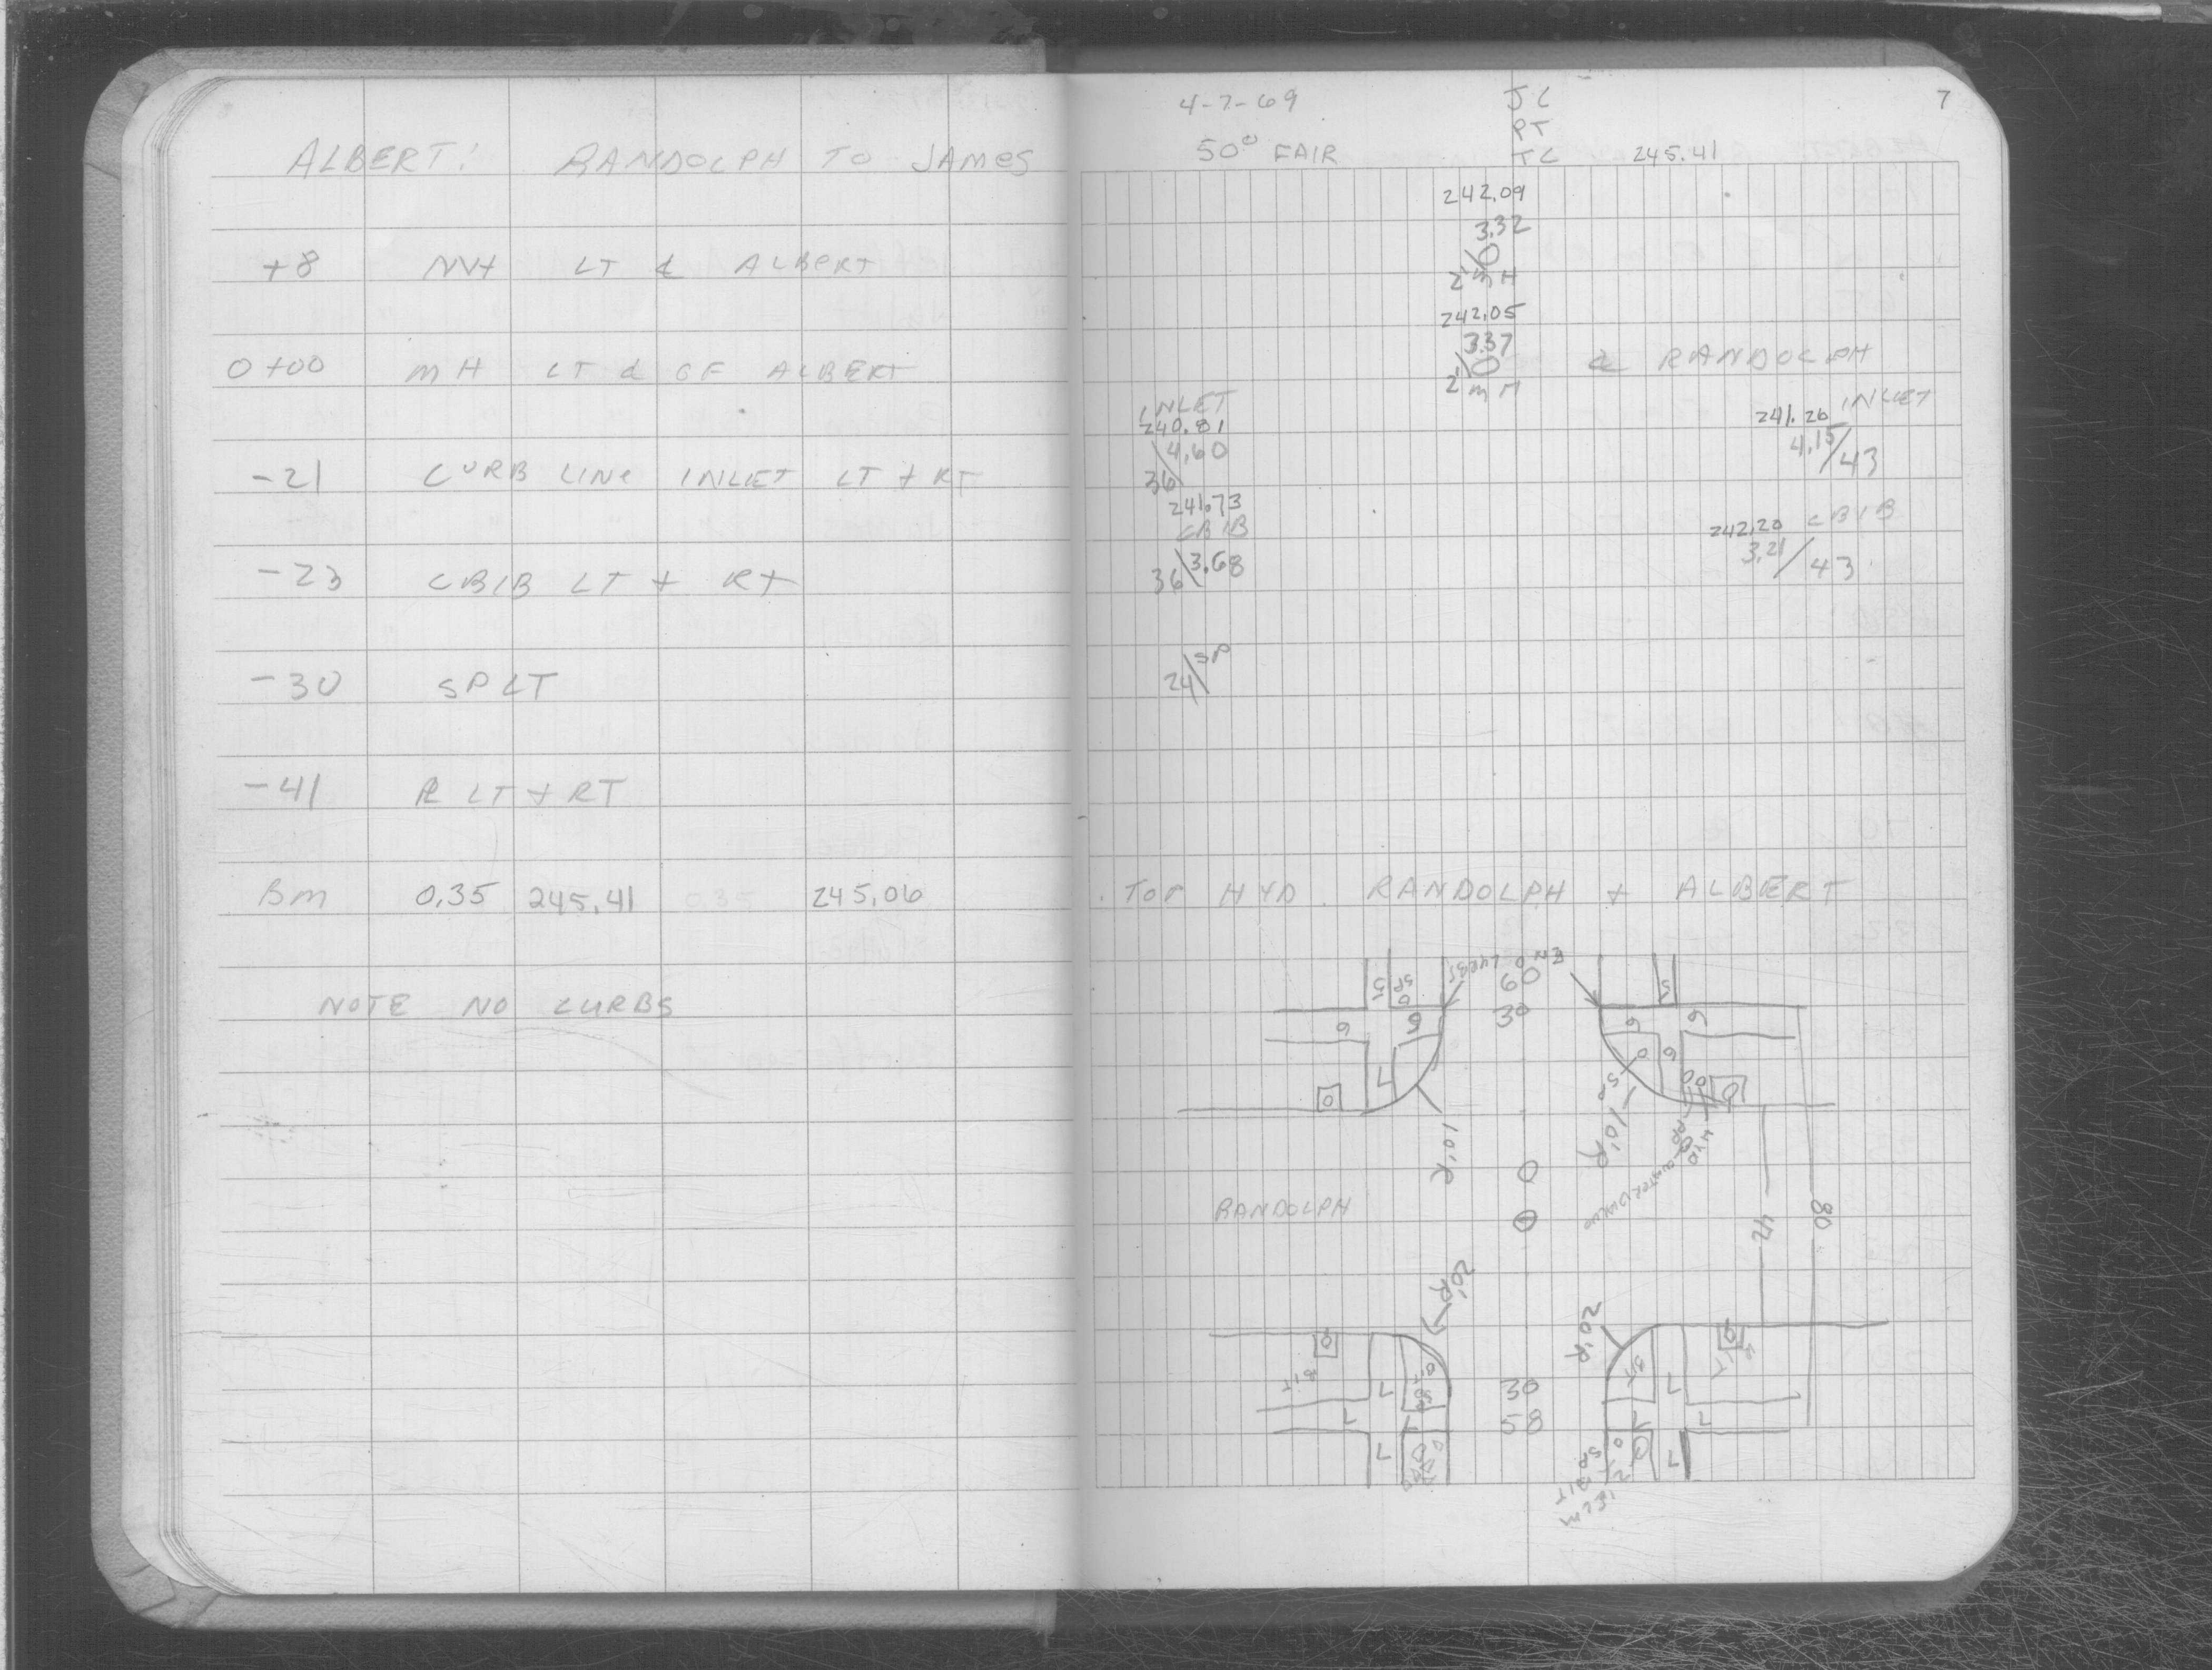 ALBERT: RANDOLPH TO JAMES
+8 LT ℄ ALBERT
0+00 MH LT ℄ OF ALBERT
-21 CURB LINE INLET LT + RT
-23 CBIB LT + RT
-30 SP LT
-41 ℞ LT + RT
BM 0.35 245.41 0.35 245.06
NOTE NO CURBS
4-7-69
50° FAIR
JC
PT
TC
245.41
7
242.09
3.32
2' MH
242.05
3.37
2' MH
℄ RANDOLPH
INLET
240.81
4.60
36
INLET
241.26
4.15
43
241.73
CBIB
3.68
36
242.20 CBIB
3.21
43
SP
24
TOP HYD. RANDOLPH + ALBERT
60
30
5
SP
5
6
6
6
6
6
L
10'R
SP
10'R
HYD
RANDOLPH
42
80
20'R
20'R
BIT
BIT
BIT
L
L
30
58
L
L
L
L
L
SP
BIT
ELM